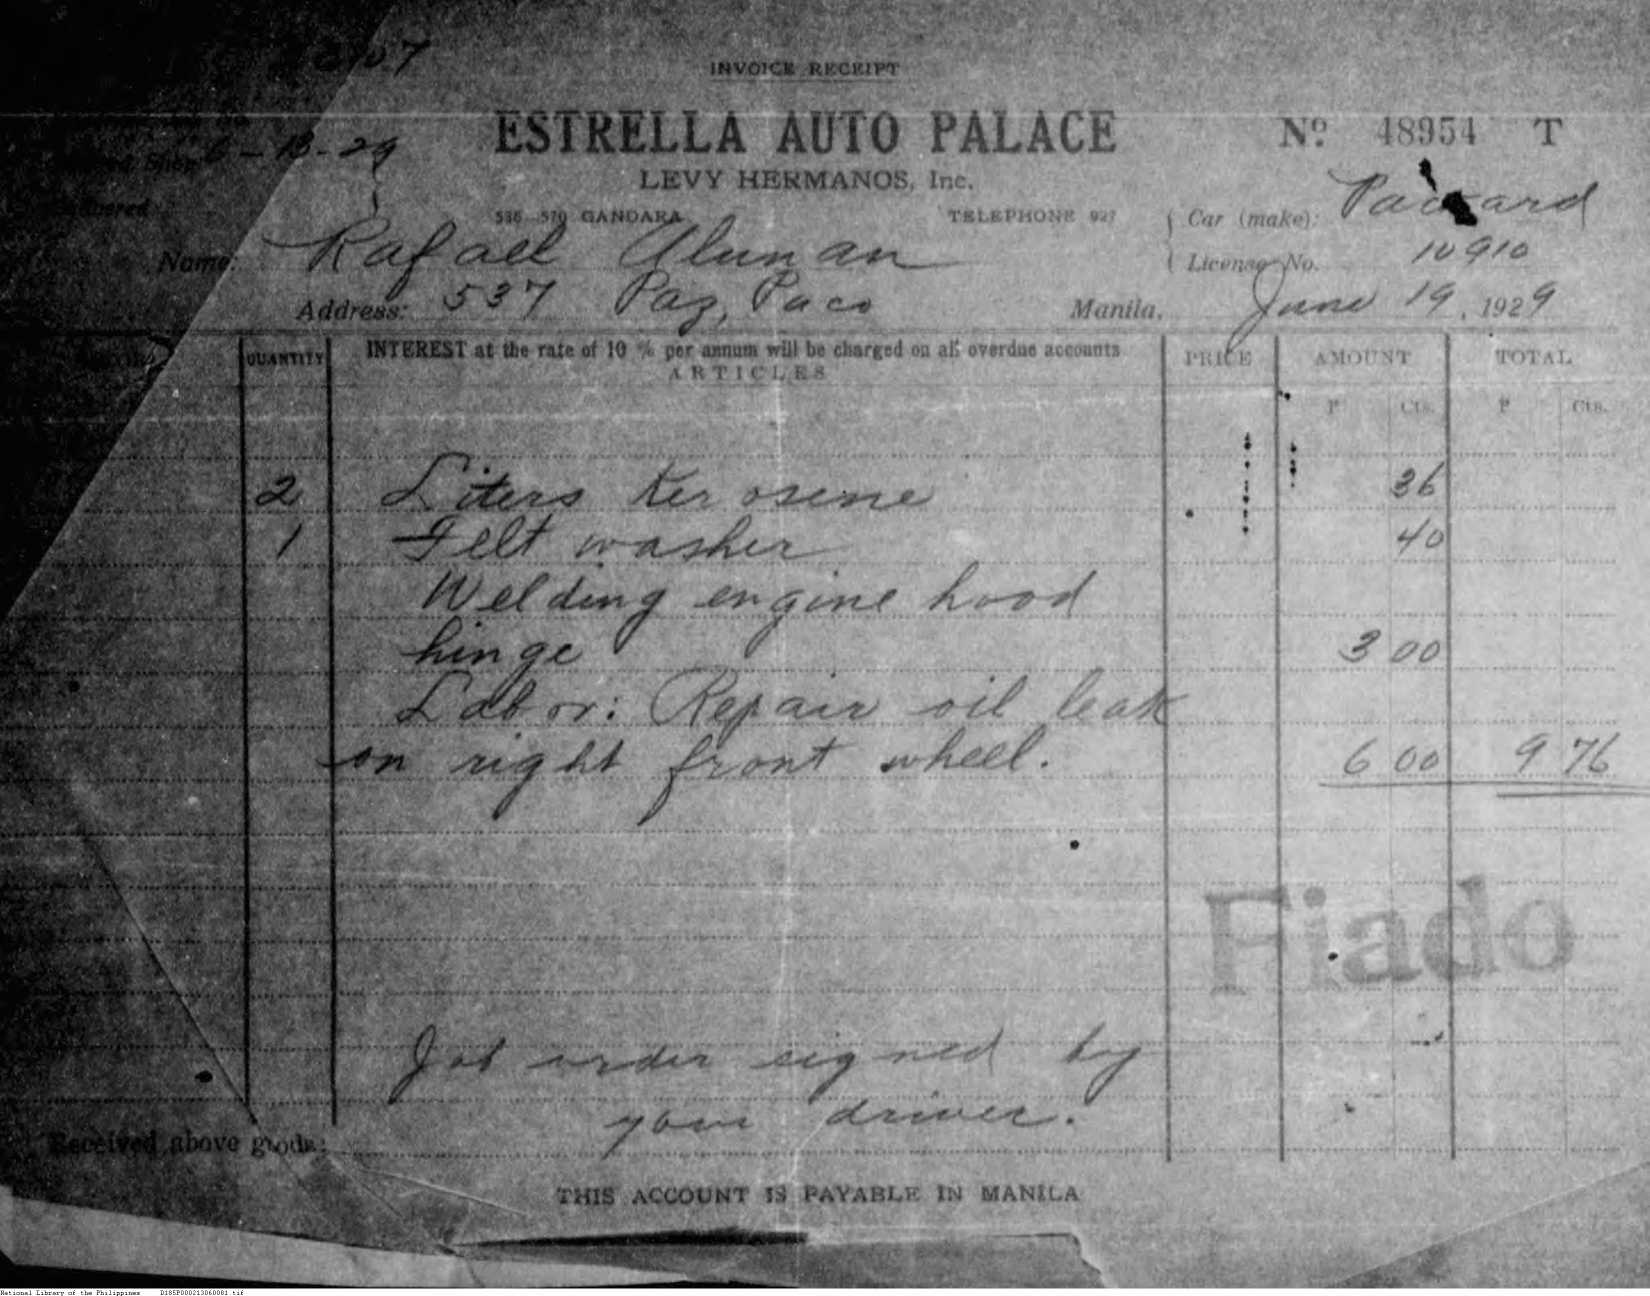 INVOICE RECEIPT
ESTRELLA AUTO PALACE
Nº 48954 T
6-13-29
LEVY HERMANOS, Inc.
536-570 GANDARA TELEPHONE 927
Car (make): Packard
Name: Rafael Alunan
License No. 10910
Address: 537 Paz, Paco Manila, June 19, 1929
QUANTITY INTEREST at the rate of 10 % per annum will be charged on all overdue accounts PRICE AMOUNT TOTAL
ARTICLES
P Cts. P Cts.
2 Liters Kerosene 36
1 Felt washer 40
Welding engine hood
hinge 3 00
Labor: Repair oil leak
on right front wheel. 6 00 9 76
Fiado
Job order signed by
your driver.
Received above goods:
THIS ACCOUNT IS PAYABLE IN MANILA
National Library of the Philippines D185P000213060081.tif